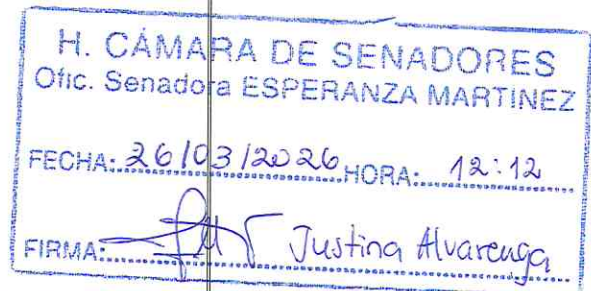 H. CÁMARA DE SENADORES
Ofic. Senadora ESPERANZA MARTINEZ
FECHA: 26/03/2026 HORA: 12:12
FIRMA: Justina Alvarenga